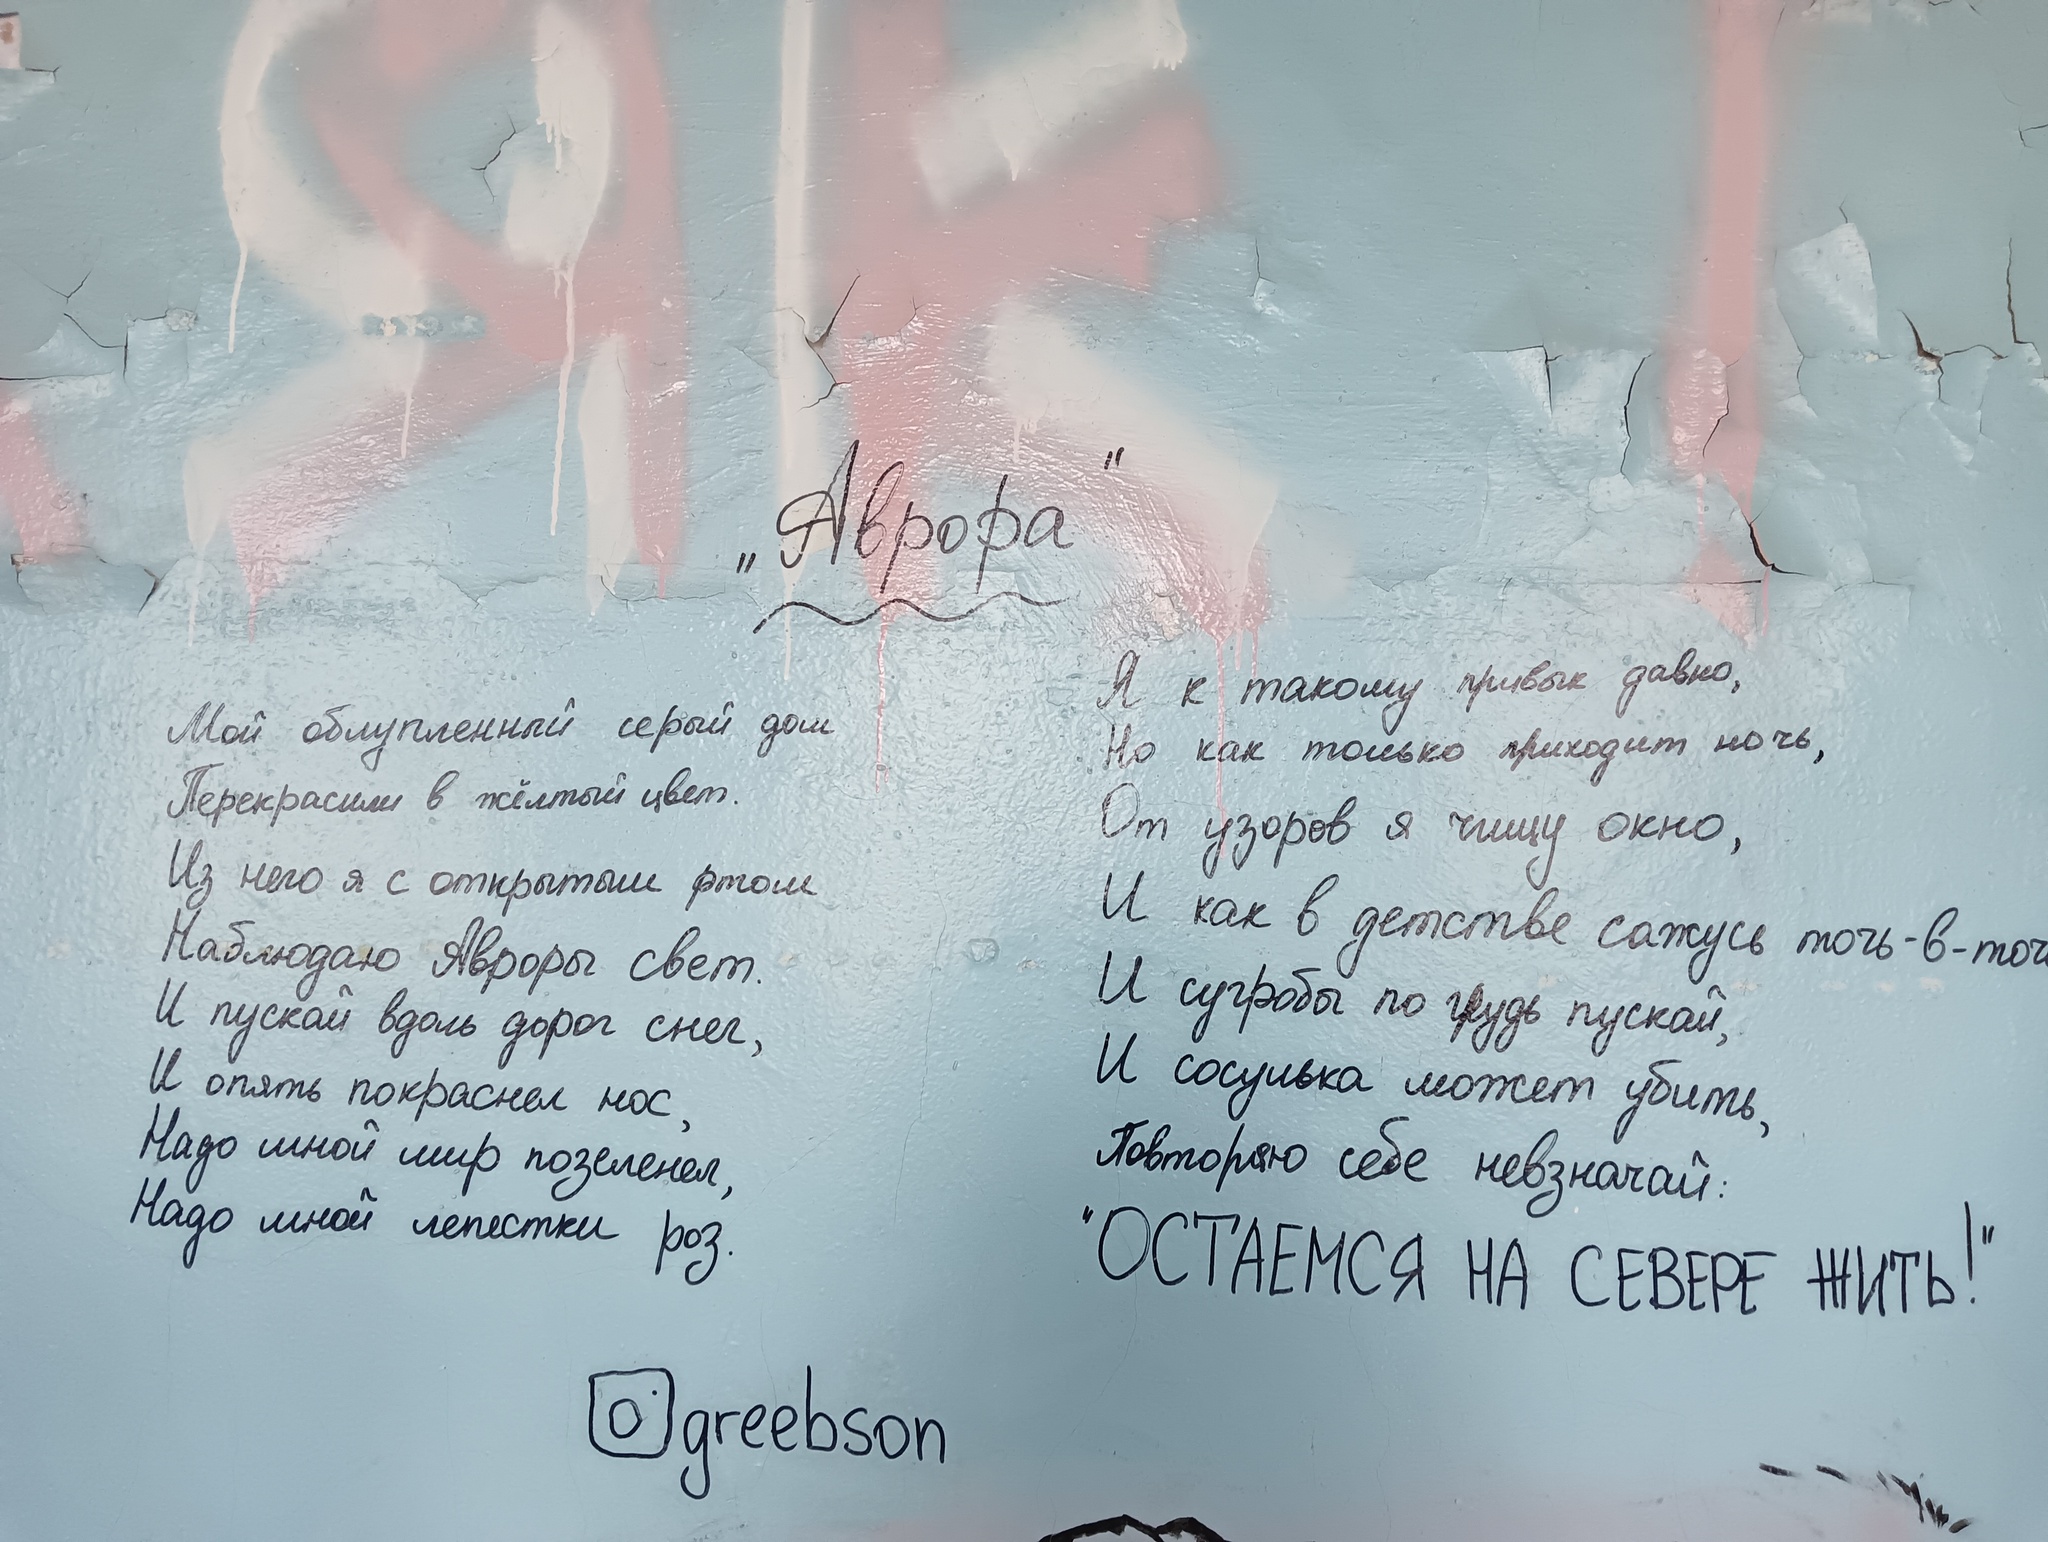 ЯК
„Аврора"
Мой облупленный серый дом
Перекрасили в жёлтый цвет.
Из него я с открытым ртом
Наблюдаю Авроры свет.
И пускай вдоль дорог снег,
И опять покраснел нос,
Надо мной мир позеленел,
Надо мной лепестки роз.
Я к такому привык давно,
Но как только приходит ночь,
От узоров я чищу окно,
И как в детстве сажусь точь-в-точ
И сугробы по грудь пускай,
И сосулька может убить,
Повторяю себе невзначай:
"ОСТАЕМСЯ НА СЕВЕРЕ ЖИТЬ!"
greebson